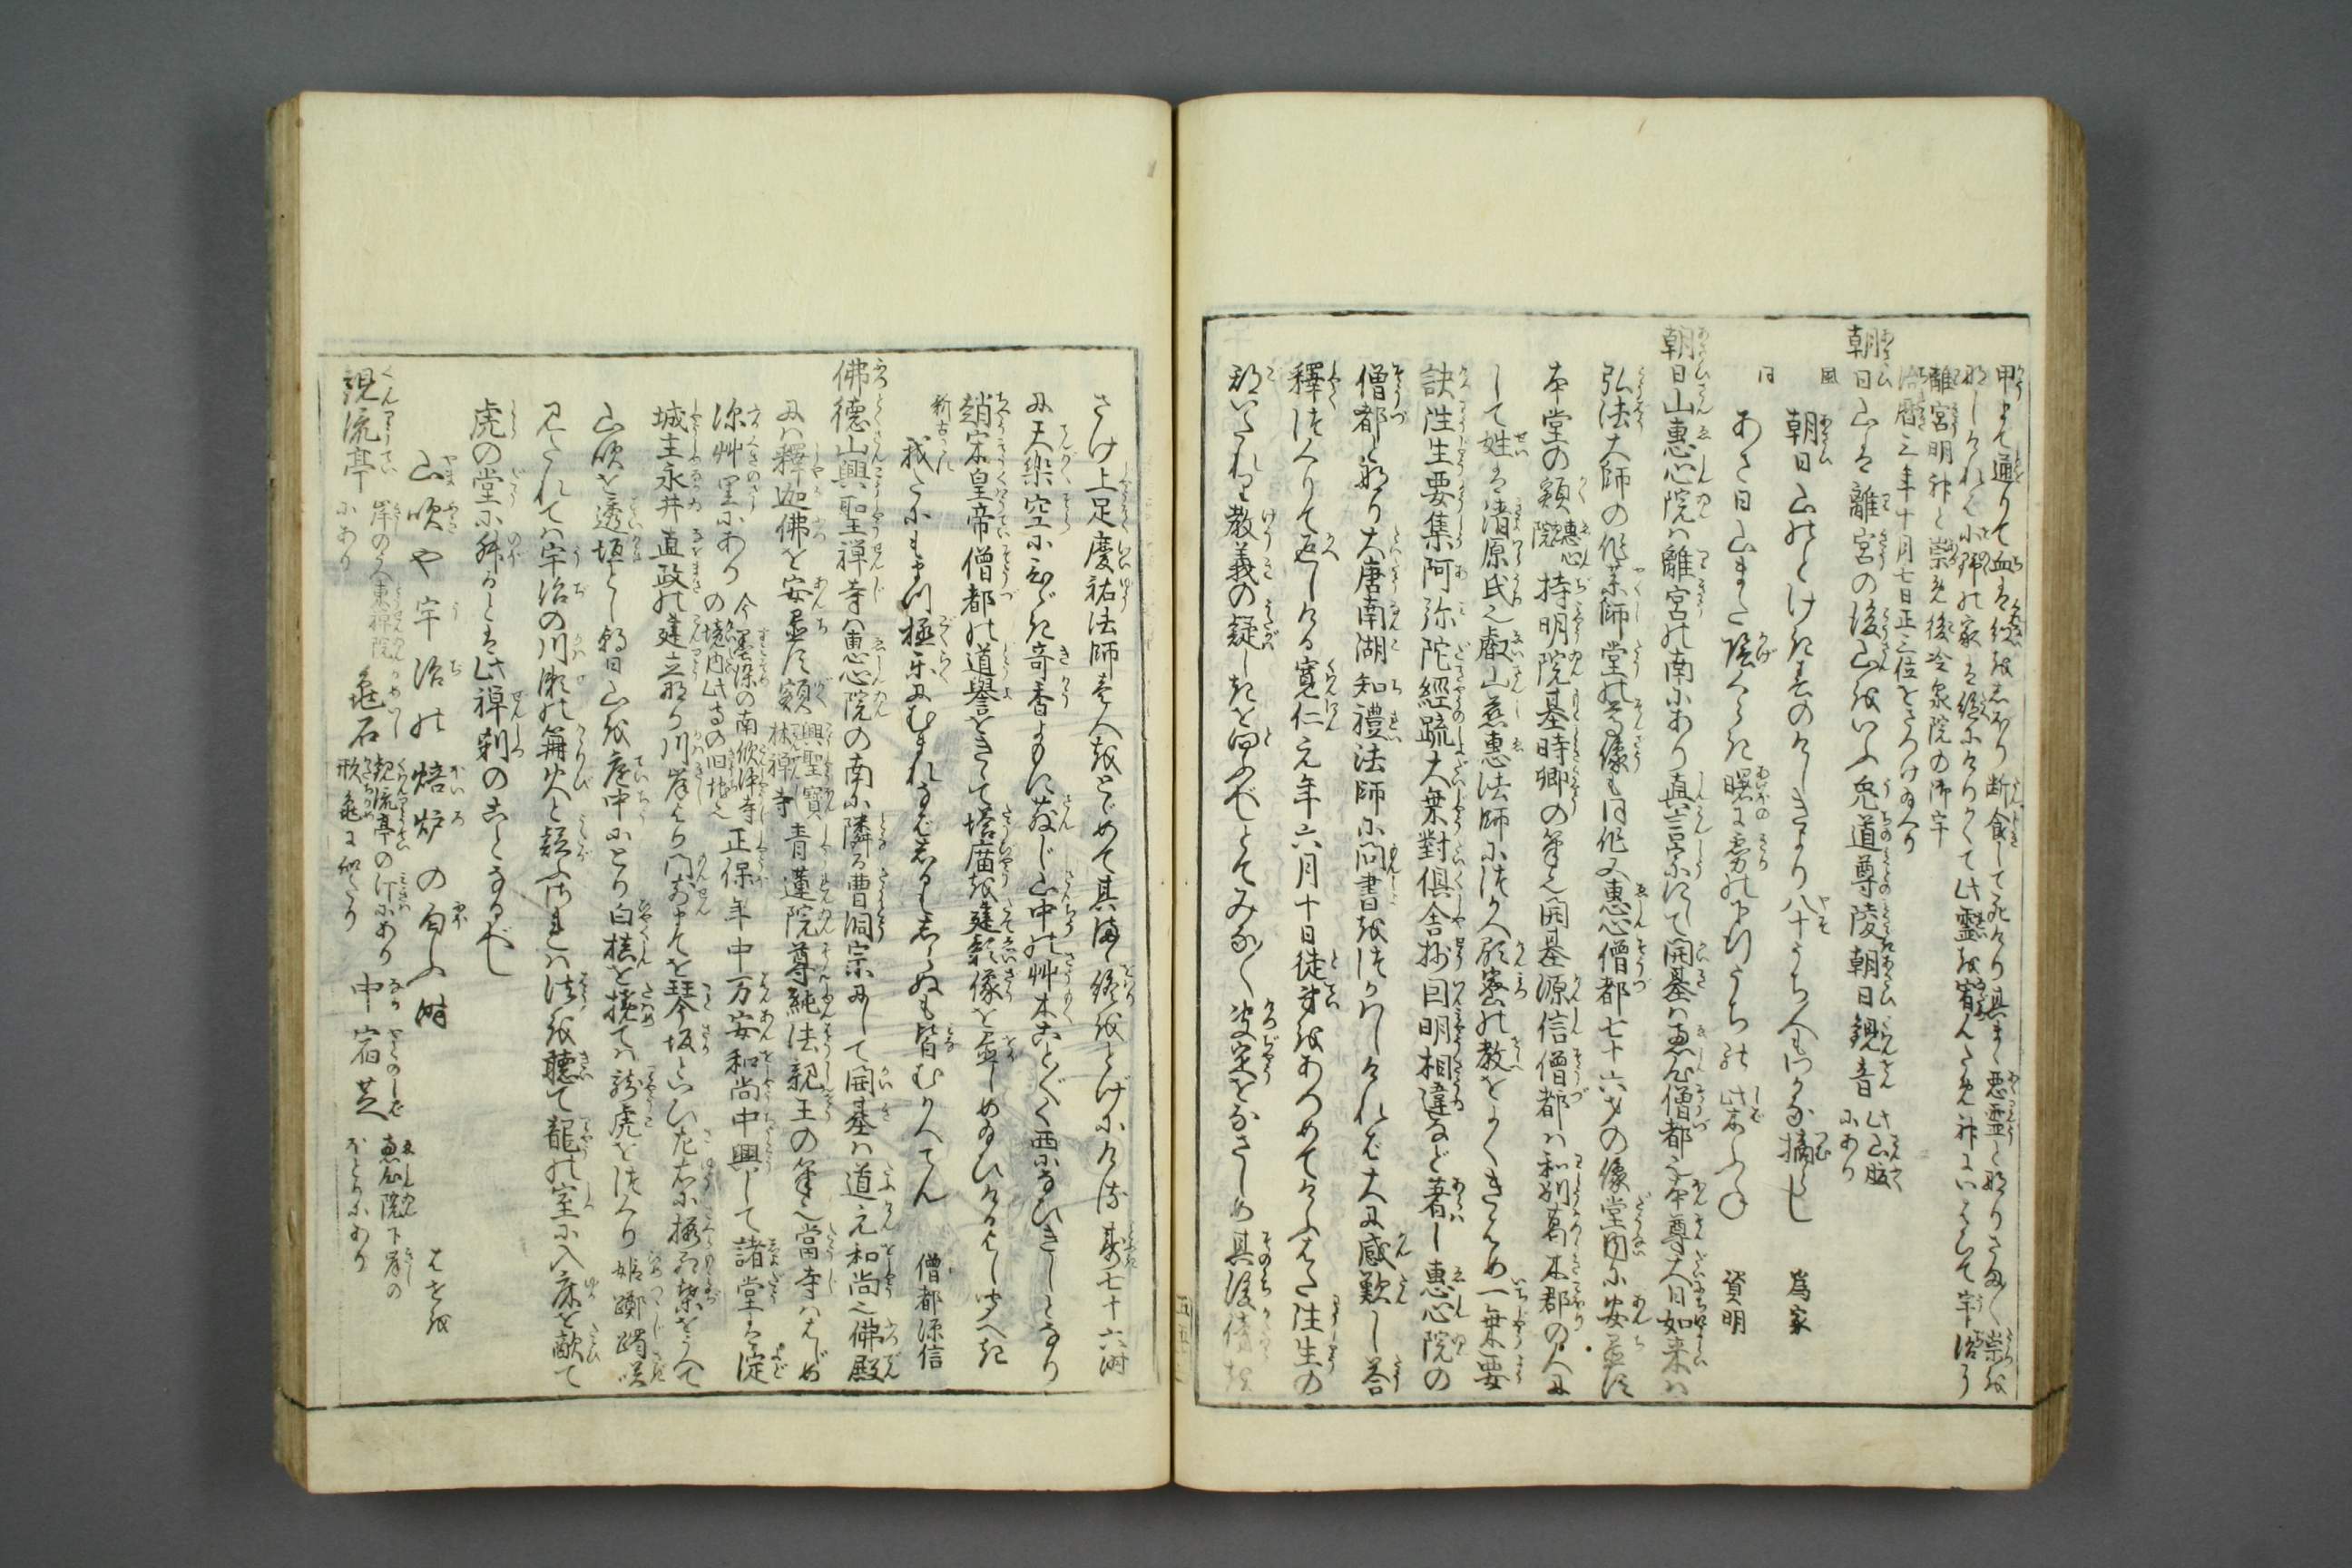 甲まて通りて血を絞をしぼり断食して死けり其まゝ悪霊と成りさま〴〵崇を
なしければ小師の家を絶にけりかくて此霊を宥んため神にいはひて宇治の
離宮明神と崇め後冷泉院の御宇
治暦三年十月七日正三位をさづけ給へり
朝日山は離宮の後山をいふ兎道尊陵朝日観音此山腹にあり
風 朝日山のとけき春のけしきより八十うち人もわかな摘らし 為家
同 あさ日山また陰くらき曙に霧の下行うちの柴ふね 資明
朝日山恵心院は離宮の南にあり真言宗にして開基は恵心僧都也本尊大日如来は
弘法大師の作薬師堂の尊像も同作又恵心僧都七十六才の像堂内に安置す
本堂の額恵心院持明院基時卿の筆也開基源信僧都は和州葛木郡の人に
して姓は清原氏也叡山慈恵法師に法り人顕密の教をよくきはめ一乗要
訣往生要集阿弥陀經疏大乗對倶舎抄因明相違など著し恵心院の
僧都と成り大唐南湖知禮法師に問書をつかはしければ大に感歎し答
釋をつくりて返しける寛仁元年六月十日徒弟をあつめてけふはた往生の
期いたれり教義の疑しきを問ふべしとてみな〳〵決定をなさしめ其後侍を
さけ上足慶祐法師壱人をとゞめて其終をとげにける壽七十六時
に天樂空にひゞき奇香よもに薫じ山中の艸木こと〴〵く西になびきしとなり
趙宋皇帝僧都の道譽をきゝて塔廟を建影像を画しめ給ひけるよし聞へき
新古今 我だにもまづ極楽にむまれなばしるもしらぬも皆むかへてん 僧都源信
佛徳山興聖禅寺は恵心院の南に隣る曹洞宗にして開基は道元和尚也佛殿
には釋迦佛を安置す額興聖寳林禅寺青蓮院尊純法親王の筆也當寺ははじめ
深艸里にあり今墨染の南欣浄寺の境内此寺の旧地也正保年中万安和尚中興して諸堂を淀
城主永井直政の建立なり川岸より門前までを琴坂といひ左右に桜紅葉をうへて
山吹を透垣とし朝日山を庭中にとり白槙を撓ては龍虎をつくり姫躑躅咲
みだれては宇治の川瀬の篝火と疑ふ法を聴て龍の室に入床を敲て
虎の堂に舛るとは此禅刹のことなるべし
山吹や宇治の焙炉の匂ふ時 はせを
観流亭岸の上東禅院にあり亀石観流亭の汀にあり形亀に似たり中宿芝恵心院下岸のほとりにあり